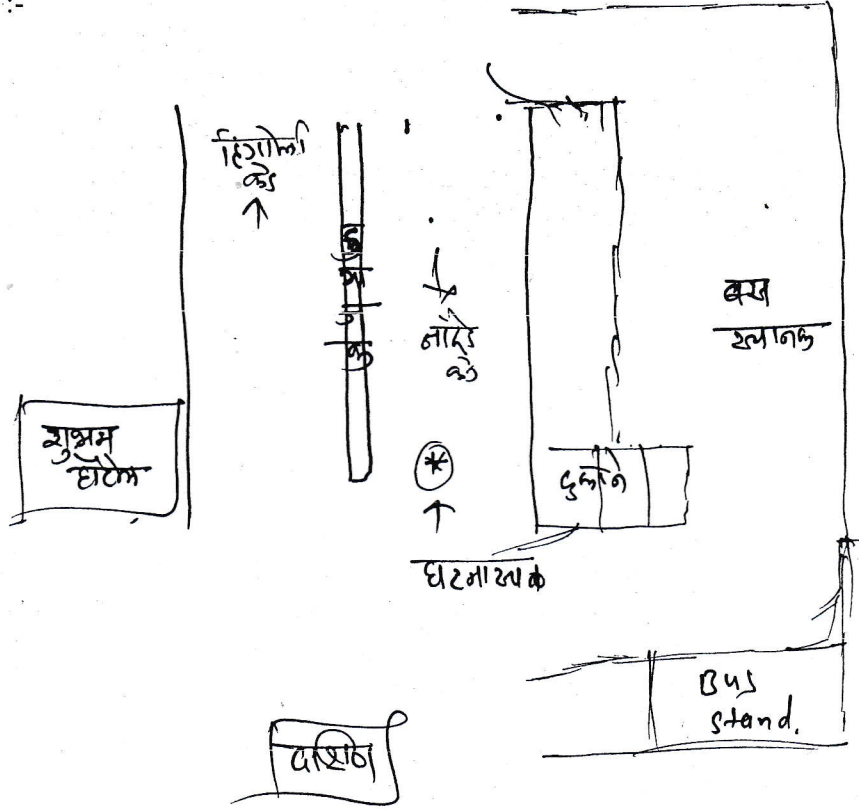 हिंगोली
कडे
दुभाजक
नांदेड
कडे
बस
स्थानक
शुभम
हॉटेल
दुकाने
घटनास्थळ
Bus
stand.